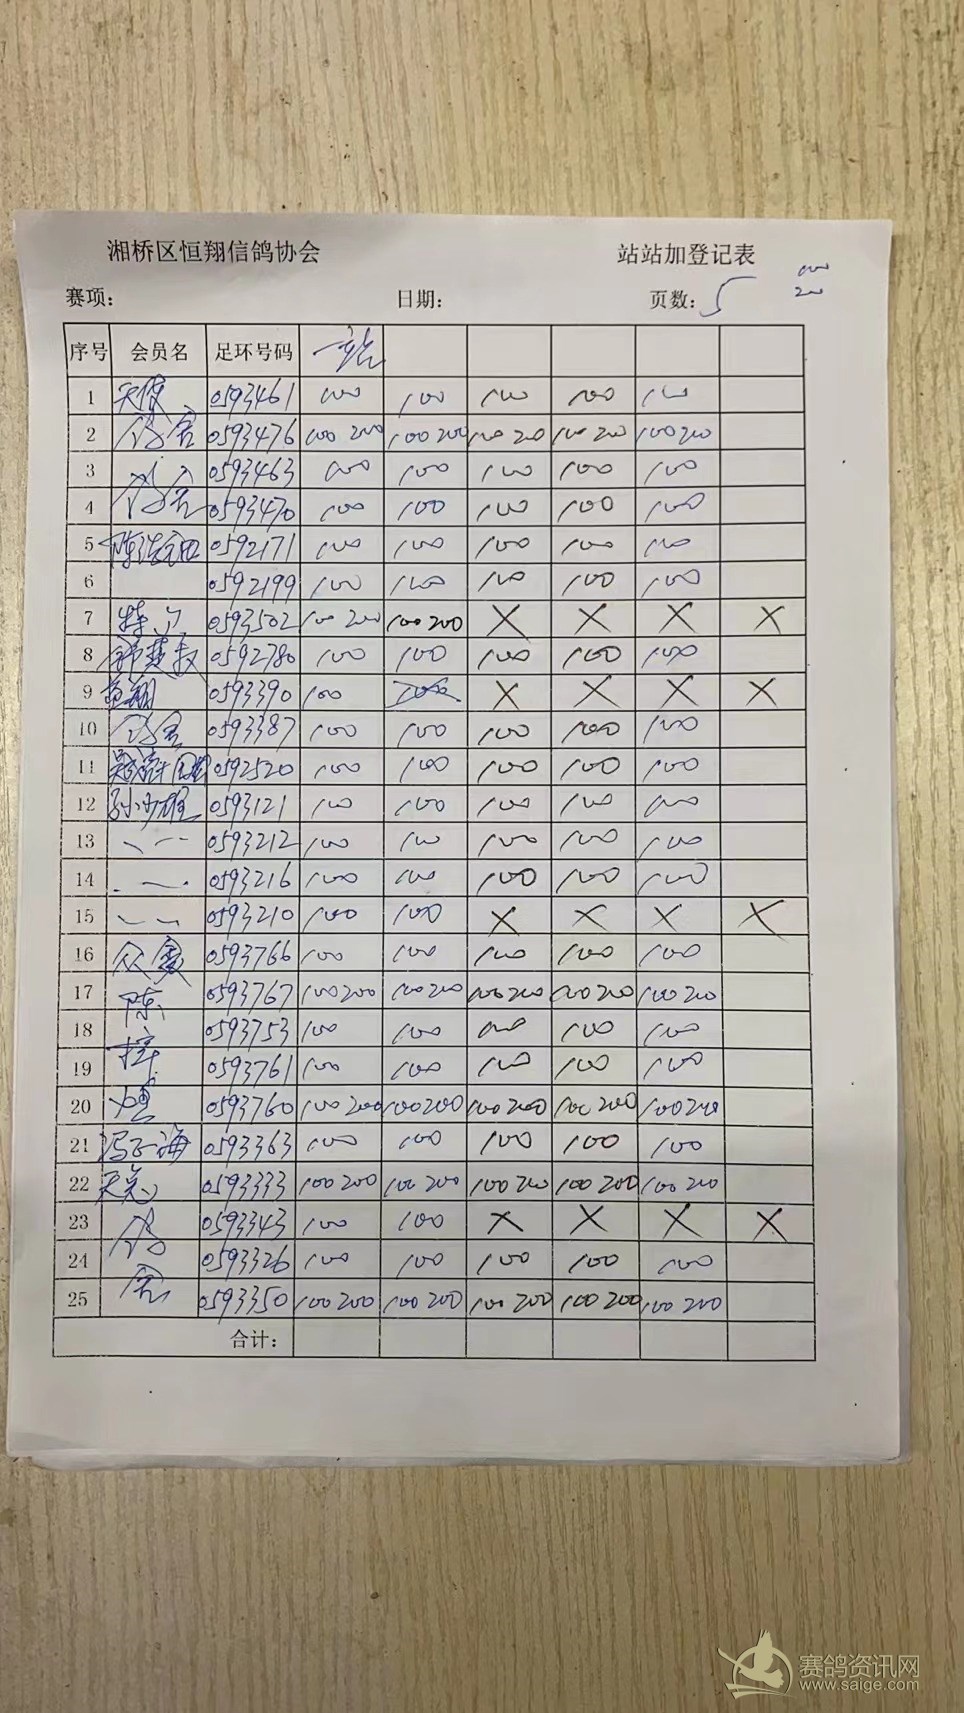 湘桥区恒翔信鸽协会 站站加登记表
赛项： 日期： 页数：5 100
200
序号 会员名 足环号码 一站
1 天使 0593461 100 100 100 100 100
2 鸽舍 0593476 100 200 100 200 100 200 100 200 100 200
3 0593463 100 100 100 100 100
4 鸽舍 0593470 100 100 100 100 100
5 0592171 100 100 100 100 100
6 0592199 100 100 100 100 100
7 0593502 100 200 100 200 X X X X
8 0592780 100 100 100 100 100
9 0593390 100 100 X X X X
10 鸽舍 0593387 100 100 100 100 100
11 0592520 100 100 100 100 100
12 孙少雄 0593121 100 100 100 100 100
13 0593212 100 100 100 100 100
14 0593216 100 100 100 100 100
15 0593210 100 100 X X X X
16 众赛 0593766 100 100 100 100 100
17 陈 0593767 100 200 100 200 100 200 100 200 100 200
18 0593753 100 100 100 100 100
19 梓 0593761 100 100 100 100 100
20 0593760 100 200 100 200 100 200 100 200 100 200
21 冯子海 0593363 100 100 100 100 100
22 0593333 100 200 100 200 100 200 100 200 100 200
23 鸽 0593343 100 100 X X X X
24 0593326 100 100 100 100 100
25 舍 0593350 100 200 100 200 100 200 100 200 100 200
合计：
赛鸽资讯网
www.saige.com